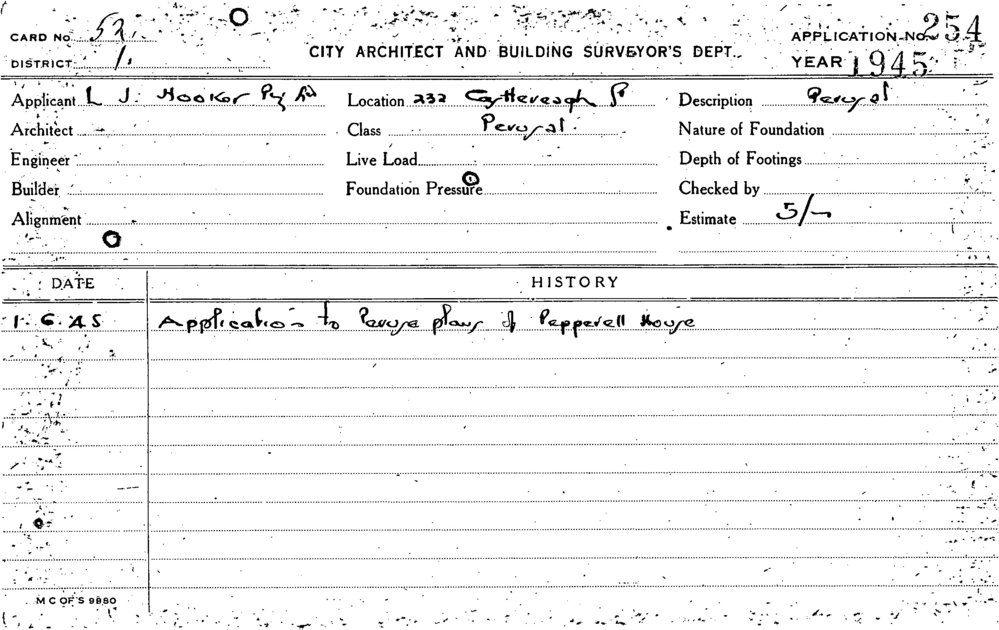 CARD No 52. CITY ARCHITECT AND BUILDING SURVEYOR'S DEPT. APPLICATION No. 254
DISTRICT 1. YEAR 1945
Applicant L J. Hooker Pty Ltd Location 232 Castlereagh St Description Perusal
Architect Class Perusal. Nature of Foundation
Engineer Live Load Depth of Footings
Builder Foundation Pressure Checked by
Alignment Estimate 5/-
DATE HISTORY
1.6.45 Application to Peruse plans of Pepperell House
M C OF S 9880